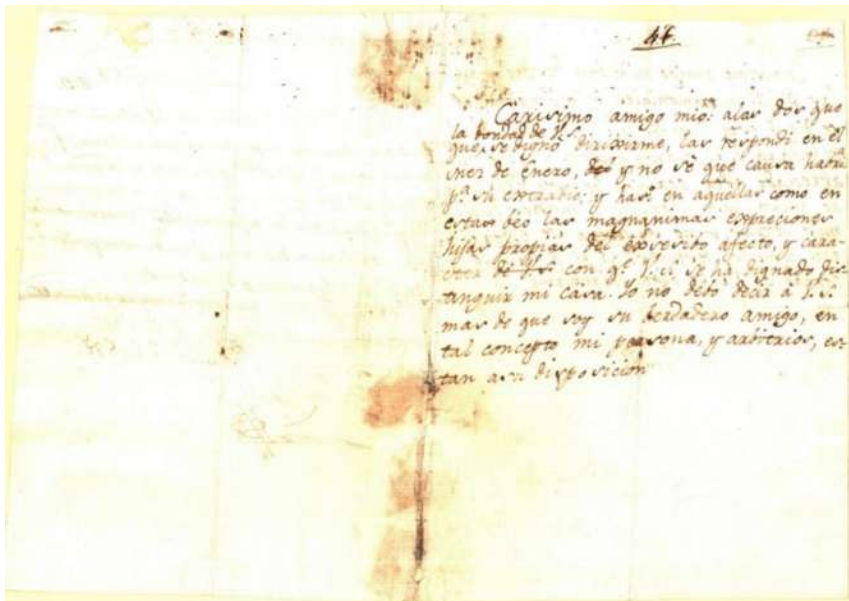 47
Carisimo amigo mio: alas dos que
la bondad de V.S.
que se dignó dirixirme, las respondi en el
mes de Enero, y no se que causa habrá
pa. su extrabio; y hasi en aquellas como en
estas beo las magnanimas expreciones
hijas propias del expresibo afecto, y cara-
cter de V.S. con qe. V.S. se ha dignado dis-
tanguir mi casa. Yo no debo decir á V.S.
mas de que soy su berdadero amigo, en
tal concepto mi persona, y arbitrios, es-
tan asu disposicion